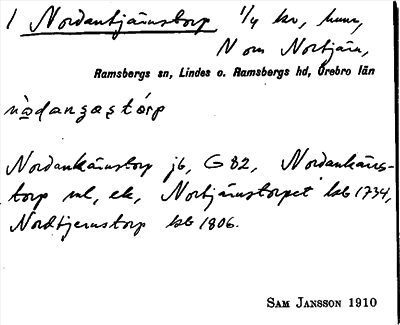 1 Nordantjärnstorp 1/4 kr, hmn,
N om Nortjärn,
Ramsbergs sn, Lindes o. Ramsbergs hd, Örebro län
nòdanʒaʂtórp
Nordankärnstorp jb, G 82, Nordankärns-
torp ml, ek, Nortjärnstorpet kb 1734,
Nordtjernstorp kb 1806.
SAM JANSSON 1910